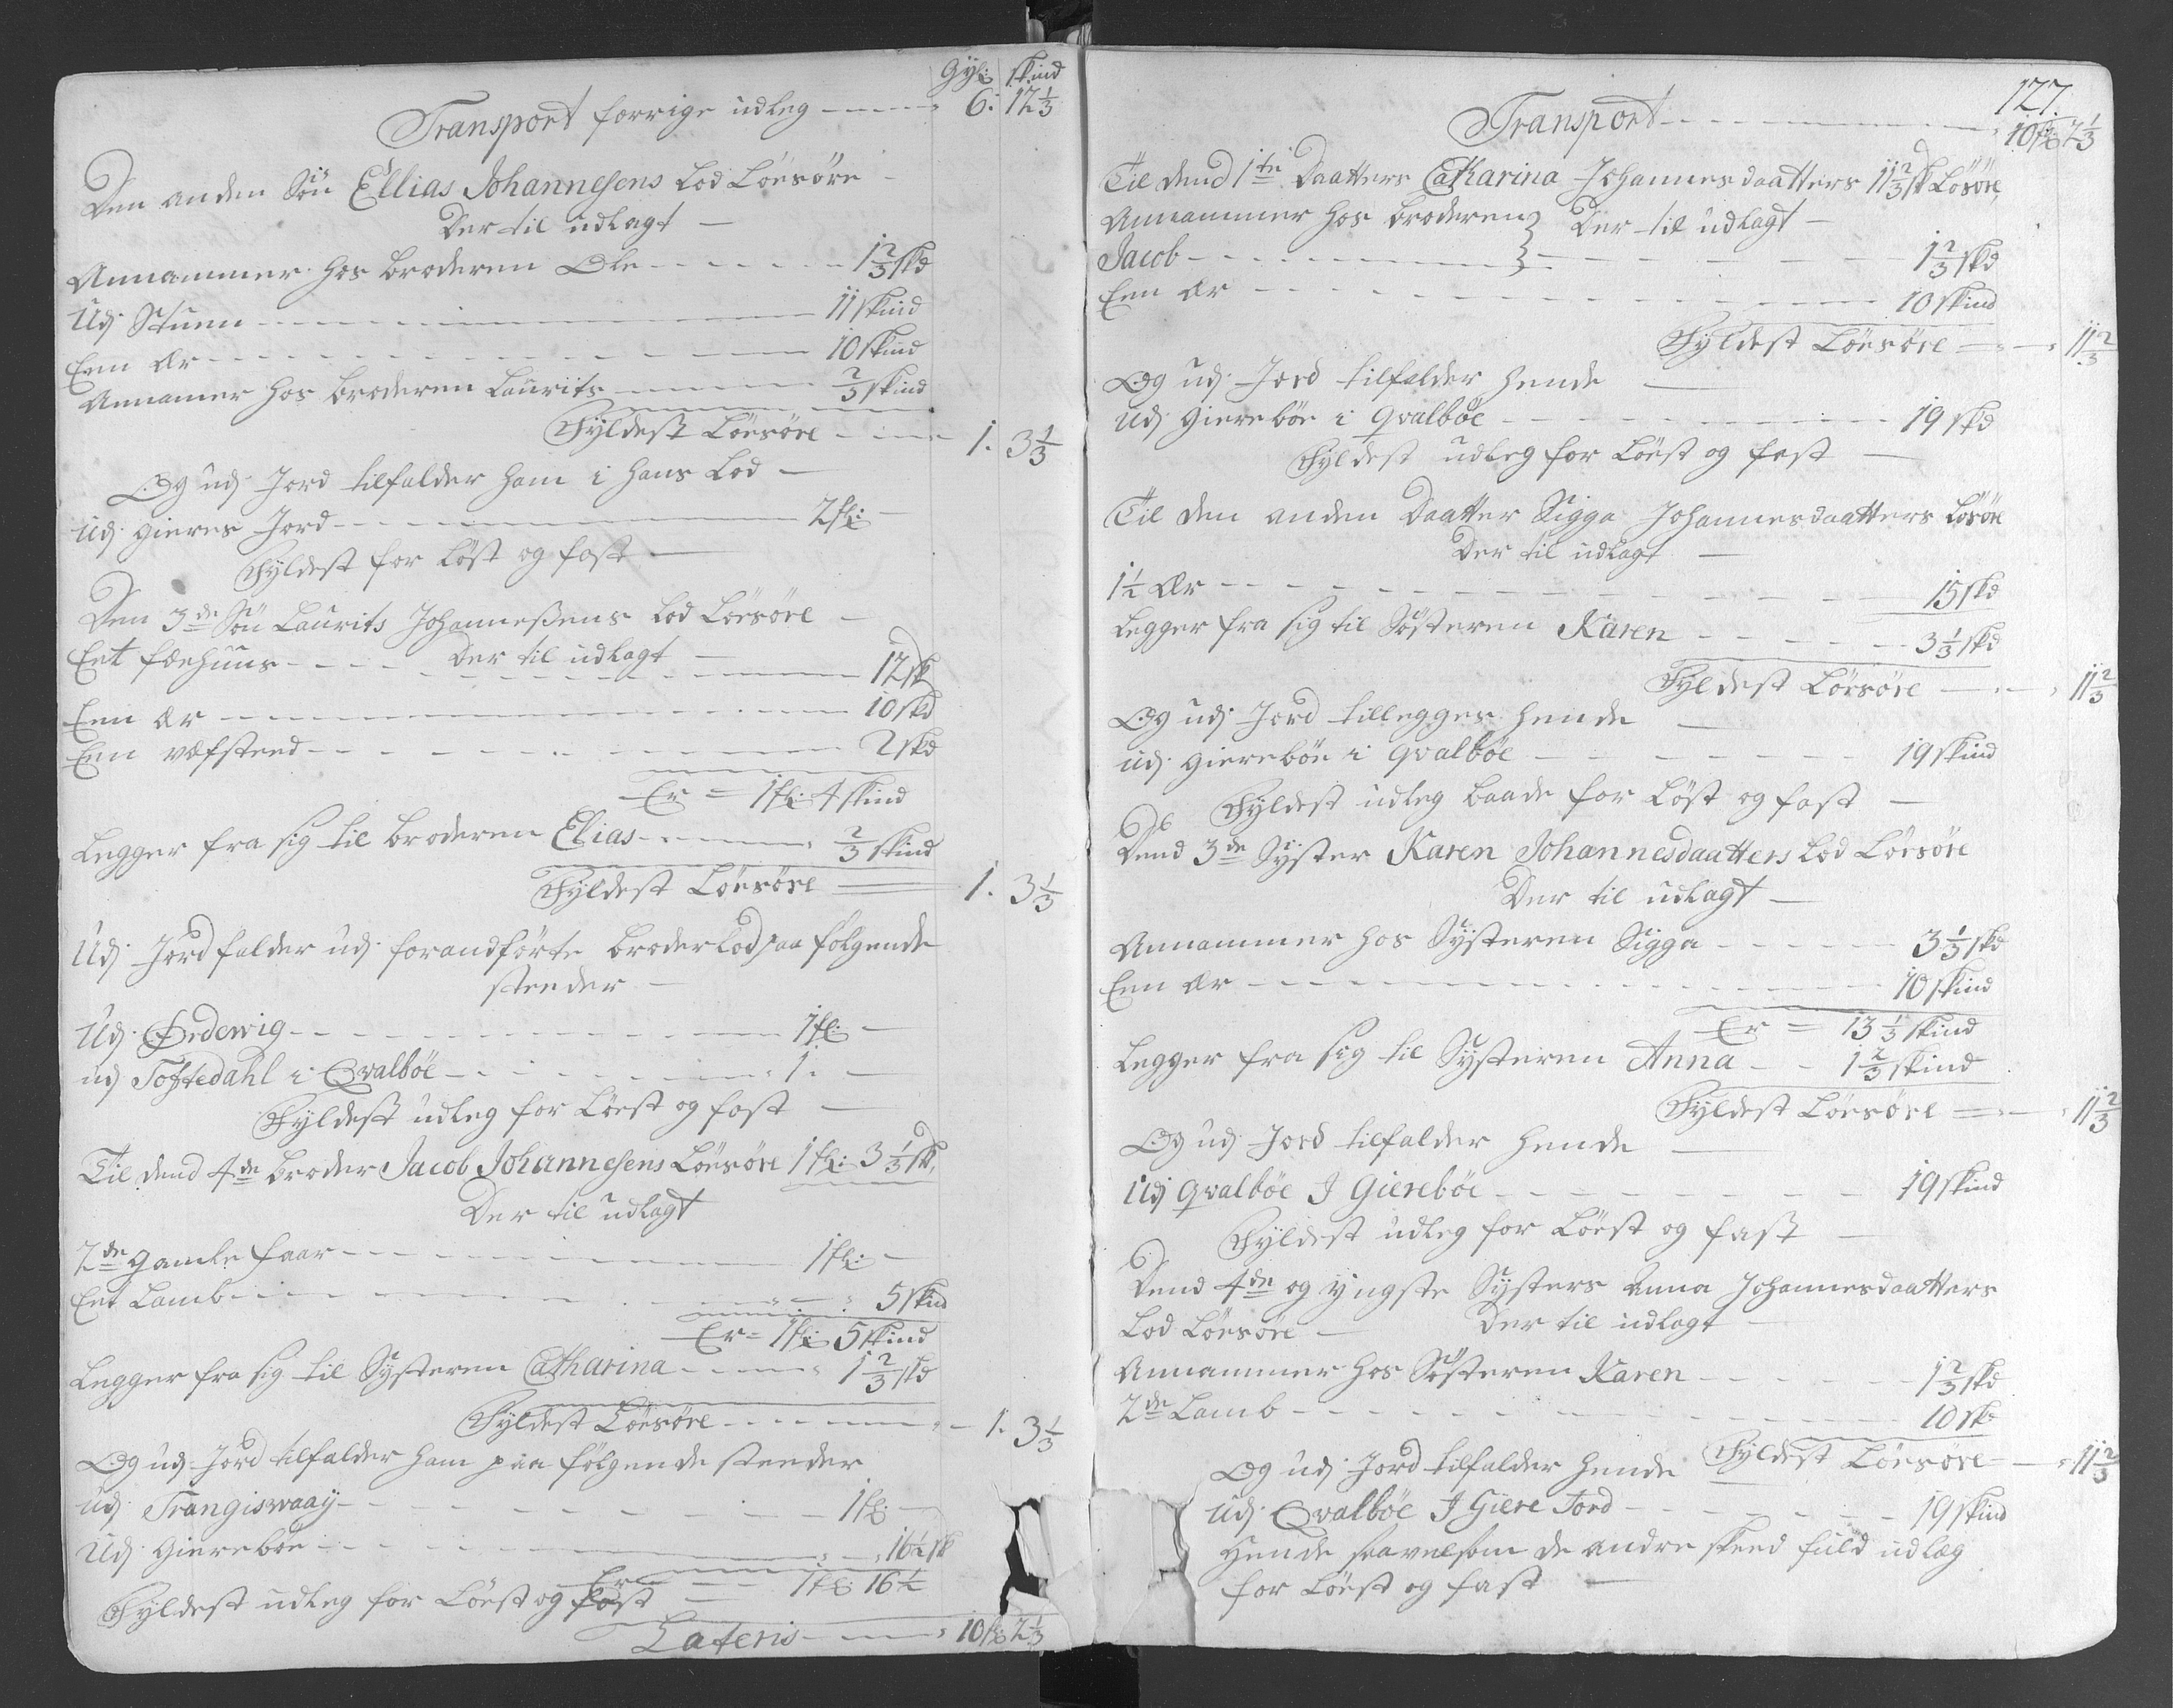 Gyl: skind
Transport forrige udleg - - - 6: 12 1/3
Den anden Sön Ellias Johannesens Lod Löesöre -
Der til udlagt -
Annammer hos broderen Ole - - - 1 2/3 skd
Udj Stuen - - - 11 skind
Een Ær - - - 10 skind
Annamer hos broderen Laurits - - - 2/3 skind
Fyldest Löesöre - - - 1. 3 1/3
Og udj Jord tilfalder ham i hans Lod -
Udj Gieres Jord - - - 2 fl: -
Fyldest for löst og fast -
Den 3de Sön Laurits Johanneßens Lod Löesöre -
Der til udlagt -
Eet fæehuus - - - 12 sk
Een Ær - - - 10 skd
Een væfsteed - - - 2 skd
Er = 1 fl: 4 skind
Legger fra sig til broderen Elias - - - 2/3 skind
Fyldest Löesöre - 1. 3 1/3
Udj Jord falder udj forandförte broderlod paa fölgende
steeder -
Udj Ördewig - - - 1 fl: -
udj Toftedahl i Qvalböe - - - 1. -
Fyldest udleg for Löest og fast -
Til dend 4de broder Jacob Johannesens Löesöre 1 fl: 3 1/3 sk.
Der til udlagt
2de gamle faar - - - 1 fl: -
Eet Lamb - - - 5 skind
Er = 1 fl: 5 skind
Legger fra sig til Systeren Catharina - - - 1 2/3 skd
Fyldest Löesöre - - - 1. 3 1/3
Og udj Jord tilfalder ham paa fölgende steeder
udj Trangiswaaÿ - - - 1 fl: -
Udj Giereböe - - - 16 1/2 sk
Er = 1 fl: 16 1/2
Fyldest udleg for Löest og fast
Lateris - - - 10 fl: 2 1/3
127.
Transport - - - 10 fl: 2 1/3
Til dend 1te Daatters Catharina Johannesdaatters 11 2/3 sk Lösöre,
Annammer hos broderen } Der til udlagt -
Jacob - - - } - - - 1 2/3 skd
Een Ær - - - 10 skind
Fyldest Löesöre - - - 11 2/3
Og udj Jord tilfalder hende -
Udj Giereböe i Qvalböe - - - 19 skd
Fyldest udleg for Löest og fast -
Til den anden Daatter Sigga Johannesdaatters Lösöre
Der til udlagt -
1 1/2 Ær - - - 15 skd
Legger fra sig til Sösteren Karen - - - 3 1/3 skd
Fyldest Löesöre - - - 11 2/3
Og udj Jord tillegges hende -
udj Giereböe i Qvalböe - - - 19 skind
Fyldest udleg baade for Löst og fast -
Dend 3de Syster Karen Johannesdaatters Lod Löesöre
Der til udlagt -
Annammer hos Systeren Sigga - - - 3 1/3 skd
Een Ær - - - 10 skind
Er = 13 1/3 skind
Legger fra sig til Systeren Anna - - 1 2/3 skind
Fyldest Löesöre - - - 11 2/3
Og udj Jord tilfalder hende -
Udj Qvalböe J Giereböe - - - 19 skind
Fyldest udleg for Löest og fast -
Dend 4de og yngste Systers Anna Johannesdaatters
Lod Löesöre - Der til udlagt -
Annammer hos Sösteren Karen - - - 1 2/3 skd
2de Lamb - - - 10 sk:
Fyldest Löesöre - - - 11 2/3
Og udj Jord tilfalder hende -
Udj Qvalböe J Giere Jord - - - 19 skind
Hende saavelsom de andre skeed fuld udlæg
for Löest og fast -